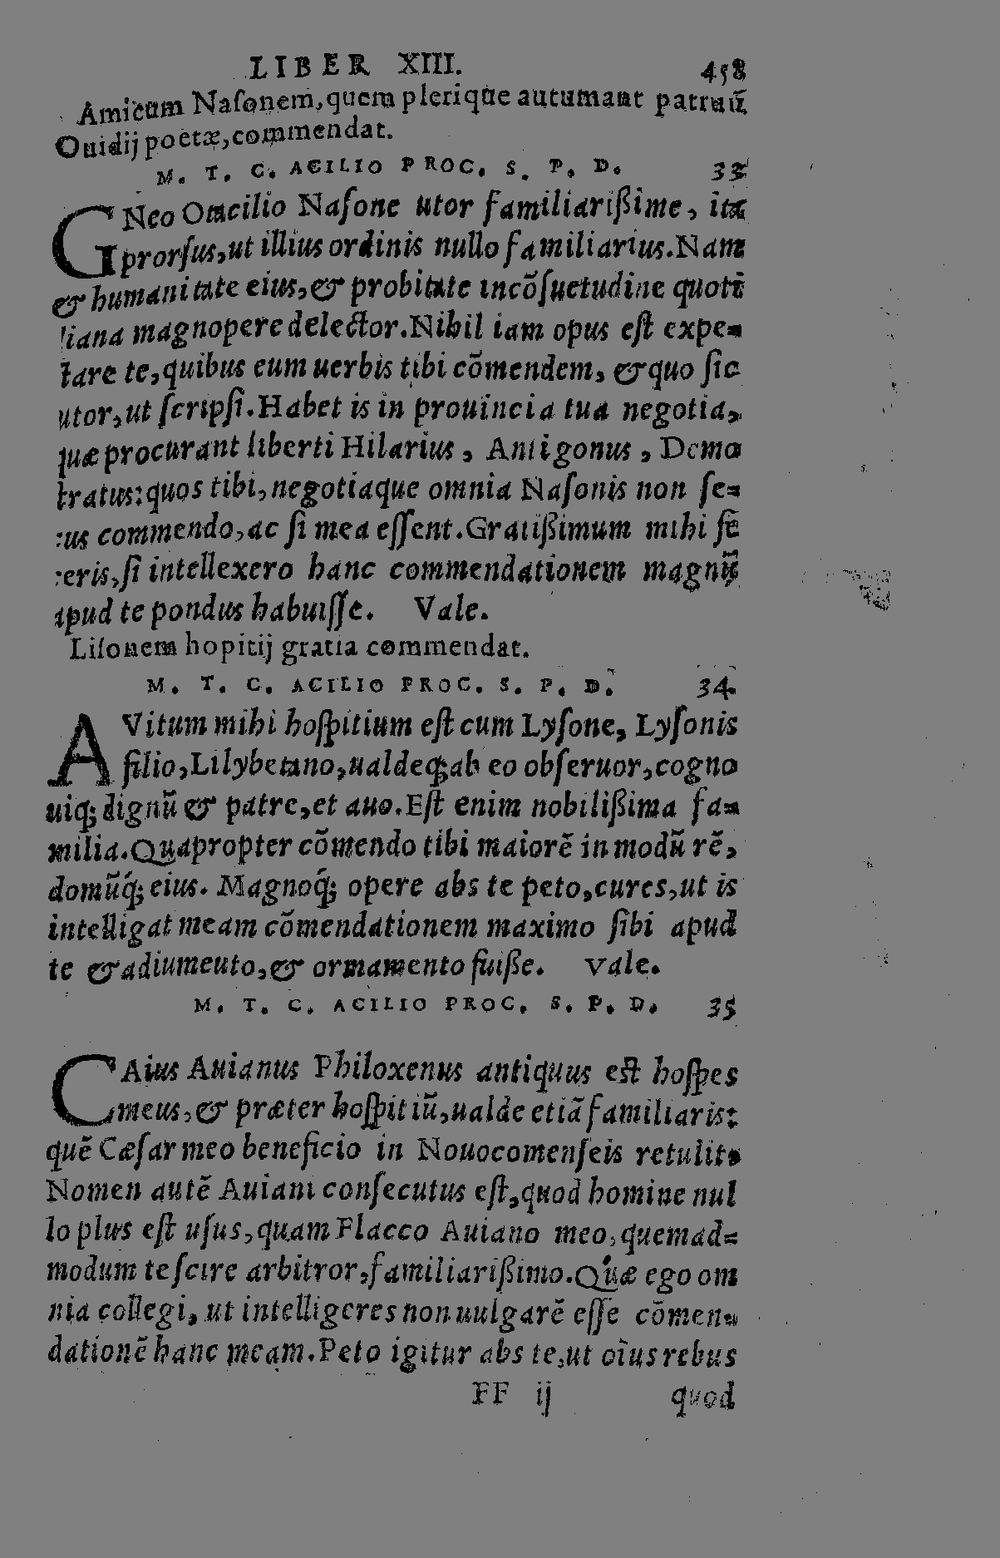 LIBER XIII. 458
Amicum Naſonem, quem plerique autumant patruũ
Ouidij poëtæ, commendat.
M. T. C. ACILIO PROC. S. P. D. 33
GNeo Otacilio Naſone utor familiarißime, ita
prorſus, ut illius ordinis nullo familiarius. Nam
& humanitate eius, & probitate incõſuetudine quoti
diana magnopere delector. Nihil iam opus eſt expe=
ctare te, quibus eum uerbis tibi cõmendem, & quo ſic
utor, ut ſcripſi. Habet is in prouincia tua negotia,
quæ procurant liberti Hilarius, Antigonus, Demo
ſtratus: quos tibi, negotiaque omnia Naſonis non ſe=
cus commendo, ac ſi mea eſſent. Gratißimum mihi fe
ceris, ſi intellexero hanc commendationem magnũ
apud te pondus habuiſſe. Vale.
Liſonem hopitij gratia commendat.
M. T. C. ACILIO PROC. S. P. D. 34
AVitum mihi hoſpitium eſt cum Lyſone, Lyſonis
filio, Lilybetano, ualdeq; ab eo obſeruor, cogno
uiq; dignũ & patre, et auo. Eſt enim nobilißima fa=
milia. Quapropter cõmendo tibi maiorẽ in modũ rẽ,
domũq́; eius. Magnoq́; opere abs te peto, cures, ut is
intelligat meam cõmendationem maximo ſibi apud
te & adiumeuto, & ornamento fuiße. Vale.
M. T. C. ACILIO PROC. S. P. D. 35
CAius Auianus Philoxenus antiquus eſt hoſpes
meus, & præter hoſpitiũ, ualde etiã familiaris:
quẽ Cæſar meo beneficio in Nouocomenſeis retulit.
Nomen autẽ Auiani conſecutus eſt, quod homine nul
lo plus eſt uſus, quam Flacco Auiano meo, quemad=
modum te ſcire arbitror, familiarißimo. Quæ ego om
nia collegi, ut intelligeres non uulgarẽ eſſe cõmen=
dationẽ hanc meam. Peto igitur abs te, ut oĩus rebus
FF ij quod